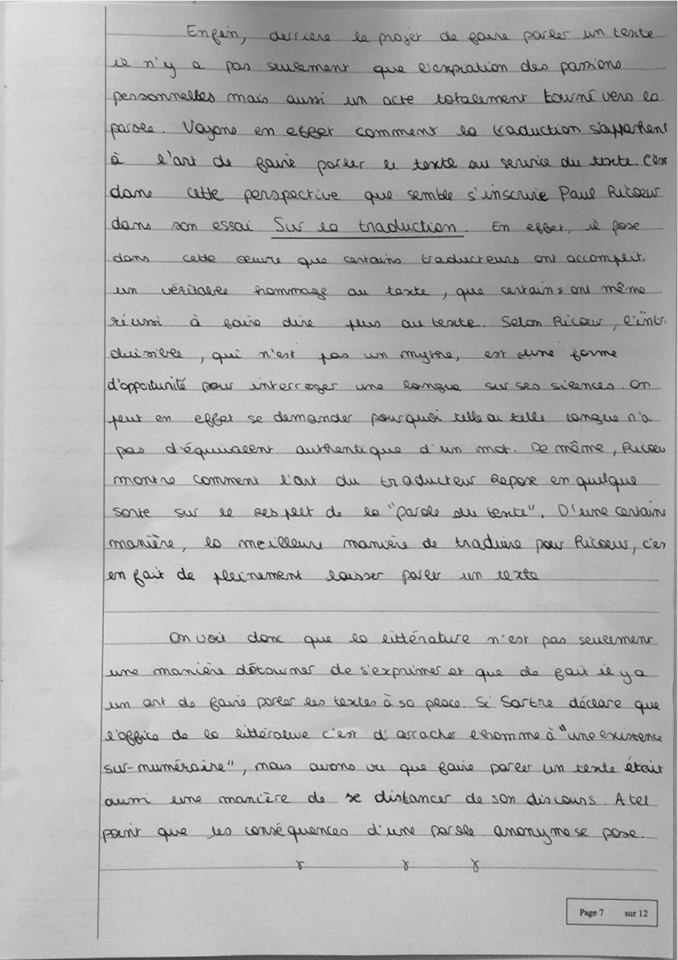 Enfin, derrière le projet de faire parler un texte
il n'y a pas seulement que l'expiation des passions
personnelles mais aussi un acte totalement tourné vers la
parole. Voyons en effet comment la traduction s'apparent
à l'art de faire parler le texte au service du texte. C'est
dans cette perspective que semble s'inscrire Paul Ricoeur
dans son essai Sur la traduction. En effet, il pose
dans cette œuvre que certains traducteurs ont accomplit
un véritable hommage au texte, que certains ont même
réussi à faire dire plus au texte. Selon Ricoeur, l'intr
duisible, qui n'est pas un mythe, est une forme
d'opportunité pour interroger une langue sur ses silences. On
peut en effet se demander pourquoi telle ou telle langue n'a
pas d'équivalent authentique d'un mot. De même, Ricoeu
montre comment l'art du traducteur repose en quelque
sorte sur le respect de la "parole du texte". D'une certaine
manière, la meilleure manière de traduire pour Ricoeur, c'es
en fait de pleinement laisser parler un texte
On voit donc que la littérature n'est pas seulement
une manière détourner de s'exprimer et que de fait il y a
un art de faire parler les textes à sa place. Si Sartre déclare que
l'office de la littérature c'est d'arracher l'homme à "une existence
sur-numéraire", nous avons vu que faire parler un texte était
aussi une manière de se distancer de son discours. A tel
point que les conséquences d'une parole anonyme se pose.
Page 7 sur 12